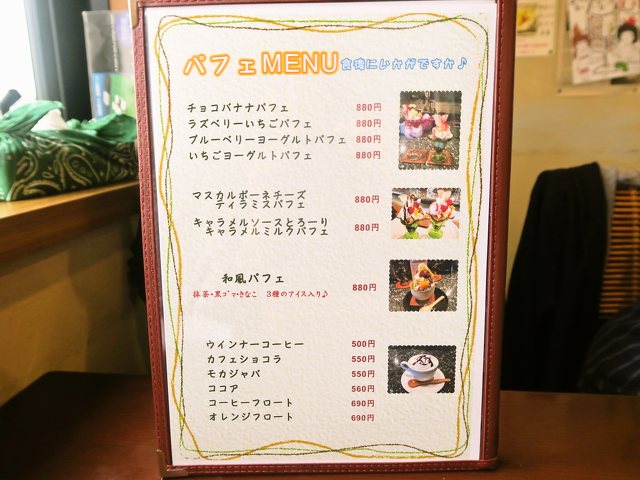 パフェMENU 食後にいかがですか♪
チョコバナナパフェ 880円
ラズベリーいちごパフェ 880円
ブルーベリーヨーグルトパフェ 880円
いちごヨーグルトパフェ 880円
マスカルポーネチーズ
ティラミスパフェ 880円
キャラメルソースとろーり
キャラメルミルクパフェ 880円
和風パフェ 880円
抹茶・黒ゴマ・きなこ 3種のアイス入り♪
ウインナーコーヒー 500円
カフェショコラ 550円
モカジャバ 550円
ココア 560円
コーヒーフロート 690円
オレンジフロート 690円